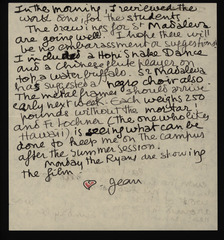 In the morning, I reviewed the
work done for the students
The drawings for St Madaleva
are going well. I hope there will
be no embarassment or suggestions
I included a Hopi Snake Dance
and a Chinese flute player on
top a water buffalo. Sr Madaleva
has suggested a negro choir also
The metal frames should arrive
early next week. Each weighs 250
pounds without the mosaic!
and Fr Lochner (The one who likes
Hawaii) is seeing what can be
done to keep me on the campus
after the Summer session.
Monday the Ryans are showing
the film
Jean